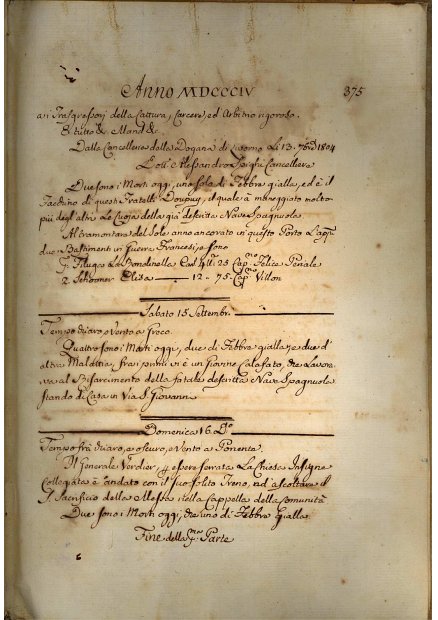 Anno MDCCCIV 375
a i Trasgressori della Cattura, Carcere, ed Arbitrio rigoroso.
E tutto & Mand &c.
Dalla Cancelleria della Dogana di Livorno Li 13. 7bre 1804
Dott. Alessandro Cancelliere
Due sono i Morti oggi, uno solo di Febbre gialla, ed è il
Facchino di questi Fratelli Doupuy, il quale à maneggiato molto
più degl'altri Le Cuoja della già descritta Nave Spagnuola
Al tramontare del Sole anno ancorato in questo Porto L'app.
due Bastimenti in guerra Francesi, e sono
1. Filuga La Rondinella Can. 4 25 Cap.no Felice Penale
2. Schooner Elisa 12 - 75 - Cap.no Villon
Sabato 15 Settembr.
Tempo chiaro, e Vento a Greco.
Quattro sono i Morti oggi, due di Febbre gialla, e due d'
altre Malattia, fra i primi vi è un giovine Calafato, che Lavora
va al Risarcimento della fatale descritta Nave Spagnuola
stando di Casa in Via S. Giovanni
Domenica 16. D.o
Tempo frà chiaro, e oscuro, e Vento a Ponente.
Il Generale Verdier, p. essere serrata La Chiesa Insigne
Collegiata è andato con il suo solito Treno, ad ascoltare il
S. Sacrificio della Messa nella Cappella della Comunità
Due sono i Morti oggi, che uno di Febbre Gialla
Fine della p.ma Parte